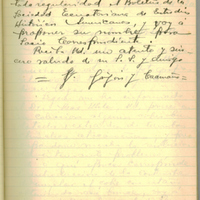 toda regularidad el Boletín de la
Sociedad Ecuatoriana de Estudios
Históricos Americanos, y voy a
proponer su nombre para
Socio Correspondiente.
Reciba Ud. un atento y sin-
cero saludo de su S. S. y amigo
= J. Gijón y Caamaño =